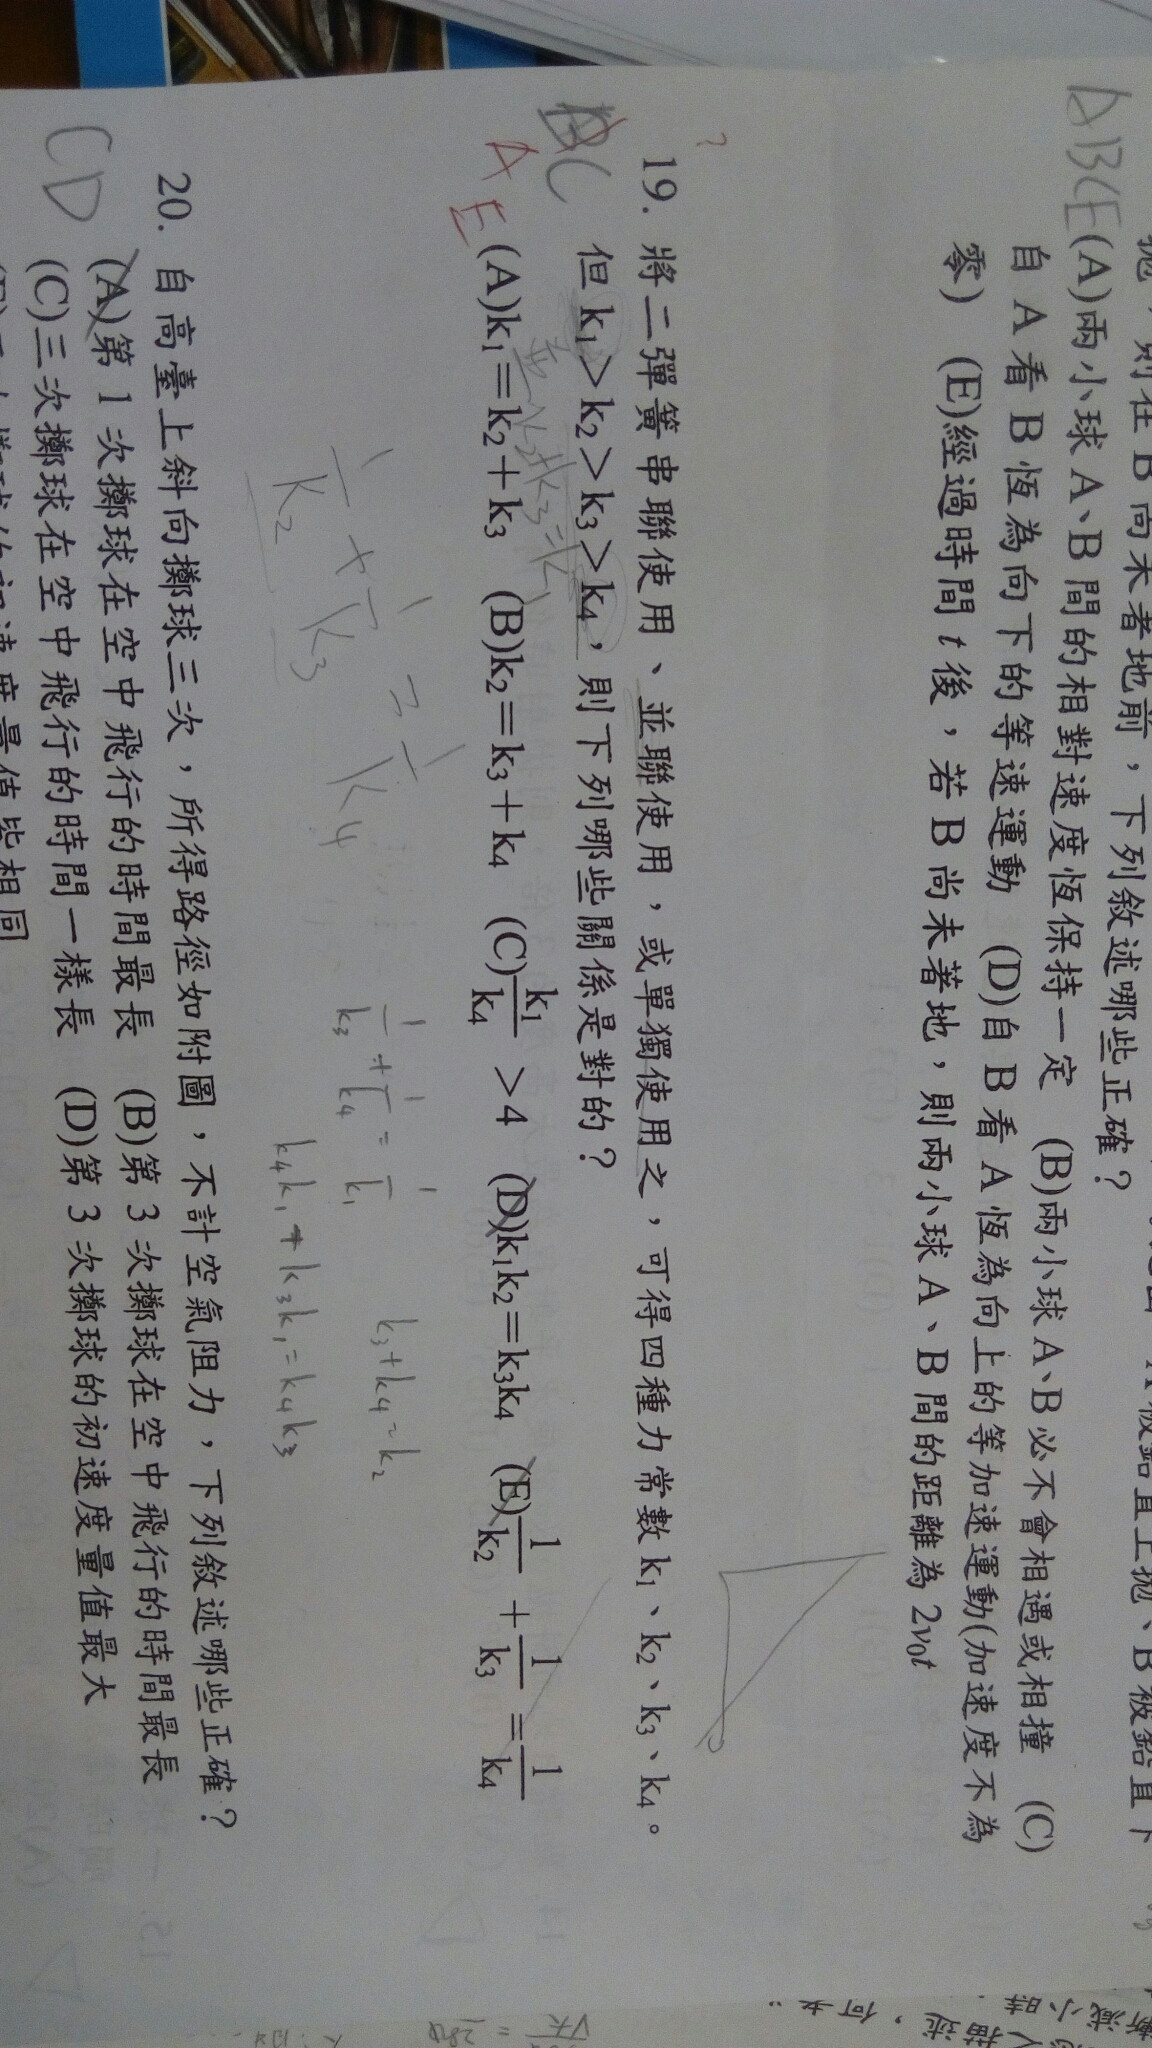 拋，則在 B 尚未著地前，下列敘述哪些正確？
ABCE
(A)兩小球 A、B 間的相對速度恆保持一定 (B)兩小球 A、B 必不會相遇或相撞 (C)
自 A 看 B 恆為向下的等速運動 (D)自 B 看 A 恆為向上的等加速運動(加速度不為
零) (E)經過時間 t 後，若 B 尚未著地，則兩小球 A、B 間的距離為 2v₀t
?
19. 將二彈簧串聯使用、並聯使用，或單獨使用之，可得四種力常數 k₁、k₂、k₃、k₄。
但 k₁＞k₂＞k₃＞k₄，則下列哪些關係是對的？
BC
A E
並 k₂+k₃=k₁
(A)k₁＝k₂＋k₃ (B)k₂＝k₃＋k₄ (C)k₁/k₄ ＞4 (D)k₁k₂＝k₃k₄ (E)1/k₂ ＋1/k₃ ＝1/k₄
1/k₂ + 1/k₃ = 1/k₄
1/k₃ + 1/k₄ = 1/k₁
k₃+k₄=k₂
k₄k₁+k₃k₁=k₄k₃
20. 自高臺上斜向擲球三次，所得路徑如附圖，不計空氣阻力，下列敘述哪些正確？
CD
(A)第 1 次擲球在空中飛行的時間最長 (B)第 3 次擲球在空中飛行的時間最長
(C)三次擲球在空中飛行的時間一樣長 (D)第 3 次擲球的初速度量值最大